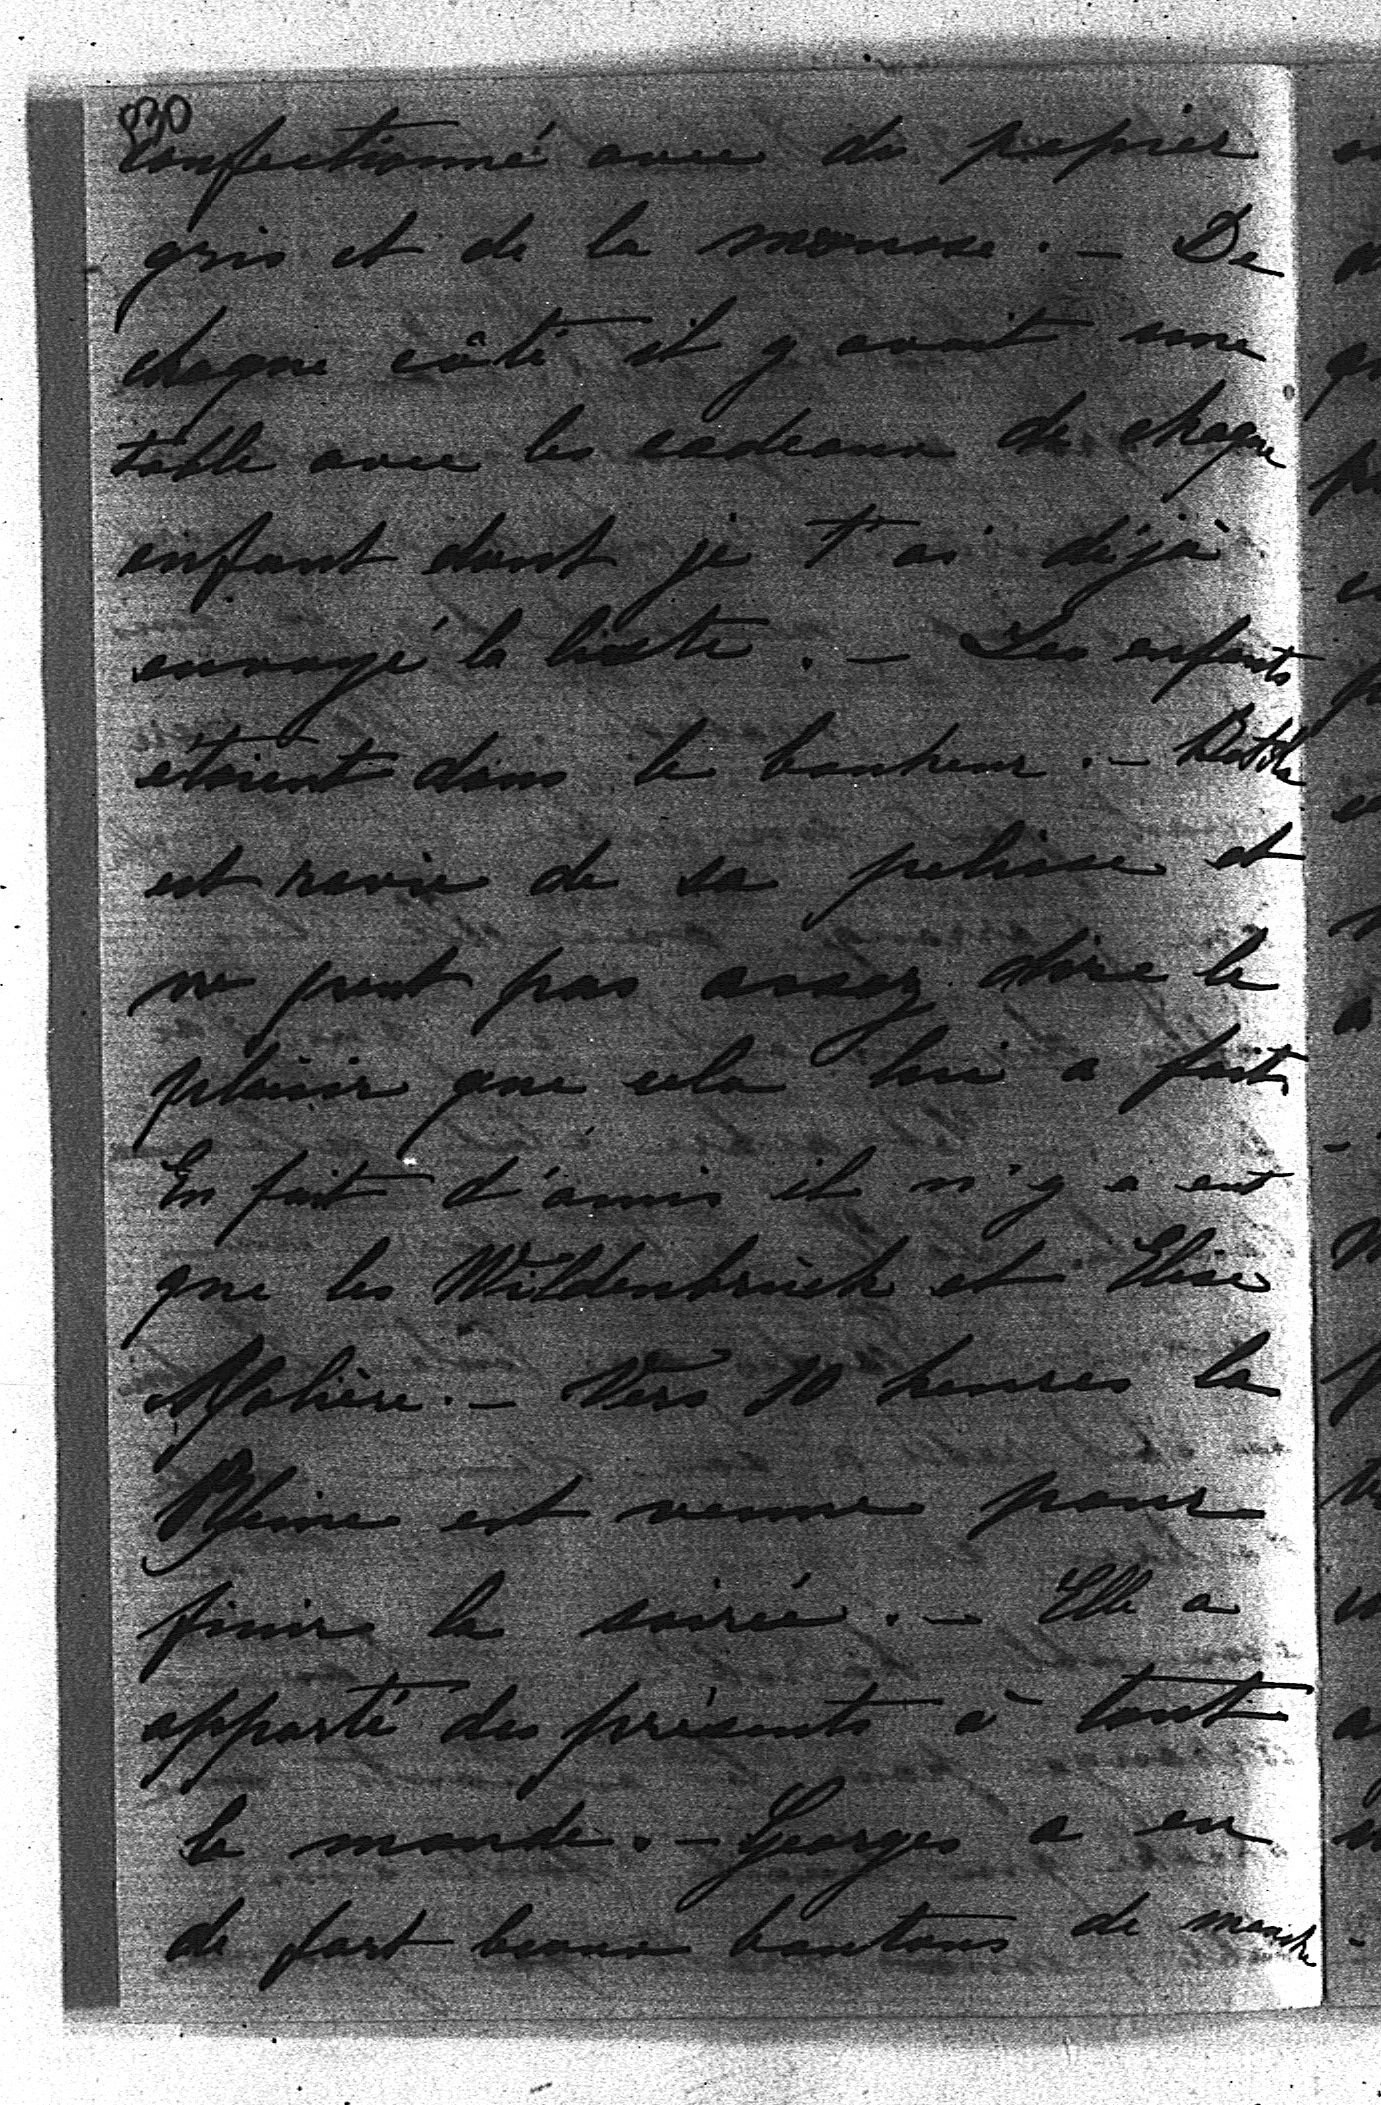 830
confectionné avec du papier
gris et de la mousse. – De
chaque côté il y avait une
table avec les cadeaux de chaque
enfant dont je t'ai déjà
envoyé la liste. – Les enfants
étaient dans le bonheur. –
est ravie de sa pelisse et
ne peut pas assez dire le
plaisir que cela lui a fait.
En fait d'amis il n'y a eut
que les Wildenbruch et Elise
Molière. – Vers 10 heures la
Reine est venue pour
finir la soirée. – Elle a
apporté des présents à tout
le monde. – Georges a eu
de fort beaux boutons de manche